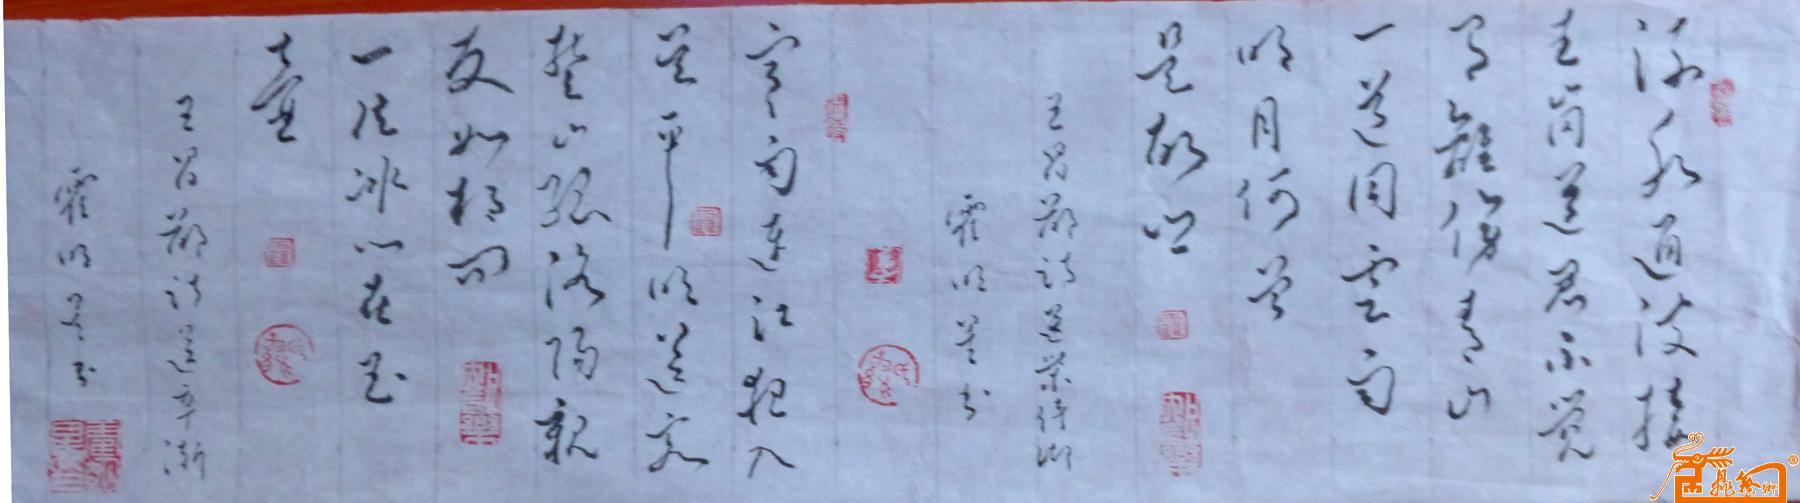 沅水通波接
武岗送君不觉
有離傷青山
一道同雲雨
明月何曾
是故乡
王昌龄诗送柴侍御
霍明书
寒雨連江夜入
吴平明送客
楚山孤洛陽親
友如相問
一片冰心在玉
壶
王昌龄诗送辛渐
霍明书